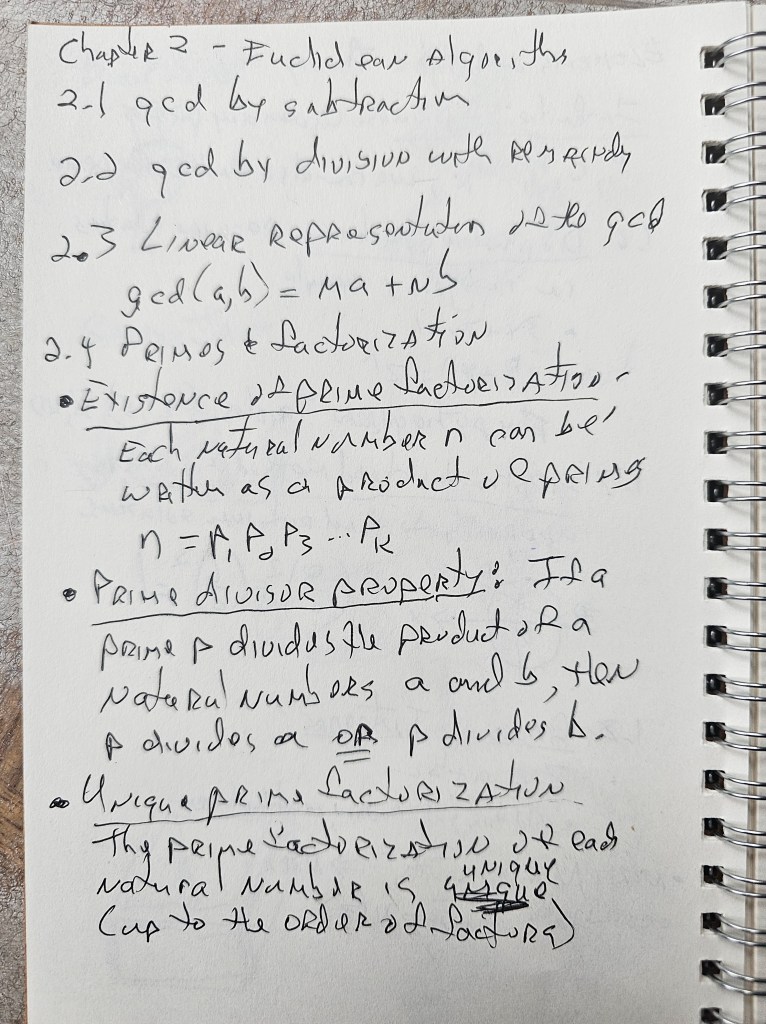 Chapter 2 - Euclidean Algorithms
2.1 gcd by subtraction
2.2 gcd by division with remainder
2.3 Linear Representation of the gcd
gcd(a,b) = ma + nb
2.4 Primes & factorization
• Existence of prime factorization -
Each natural number n can be
written as a product of primes
n = P₁ P₂ P₃ ... Pₖ
• Prime divisor property: If a
prime p divides the product of a
natural numbers a and b, then
p divides a or p divides b.
• Unique prime factorization
The prime factorization of each
unique
natural number is
(up to the order of factors)